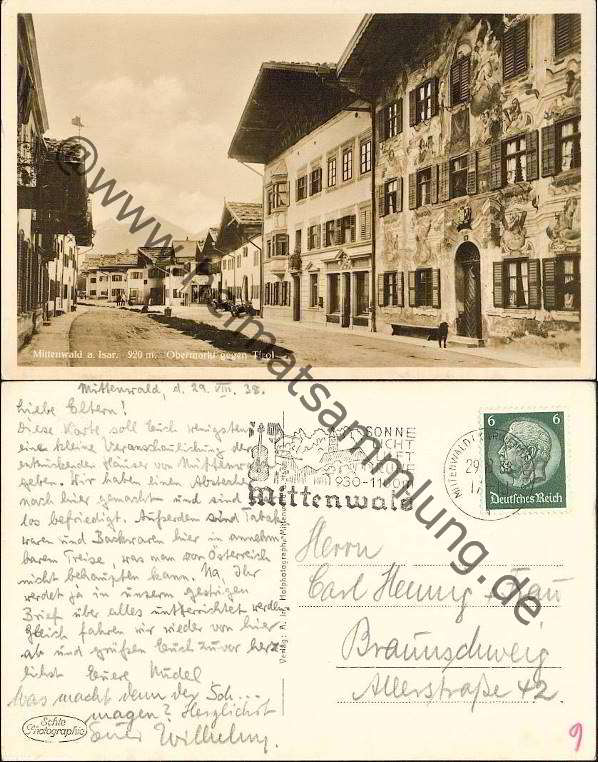 Mittenwald a. Isar. 920 m. Obermarkt gegen Tirol
© www.heimatsammlung.de
Mittenwald, d. 29. VIII. 38.
Liebe Eltern!
Diese Karte soll Euch wenigstens
eine kleine Veranschaulichung der
entzückenden Häuser von Mittenwald
geben. Wir haben einen Abstecher
nach hier gemacht und sind
los befriedigt. Außerdem sind Tabak-
waren und Backwaren hier in annehm-
baren Preise, was man von Österreich
nicht behaupten kann. Na, Ihr
werdet ja in unserm gestrigen
Brief über alles unterrichtet werden.
Gleich fahren wir wieder von hier
ab und grüßen Euch zuvor herz-
lichst Eure Nudel
Was macht denn der Soh...
magen? Herzlichst
Euer Wilhelm.
Echte
Photographie
Verlag: Hofphotograph, Mittenwald
SONNE
LICHT
LUFT
930-
Mittenwald
MITTENWALD
29
6 6
Deutsches Reich
Herrn
Carl Hennig u. Frau
Braunschweig
Allerstraße 42
9